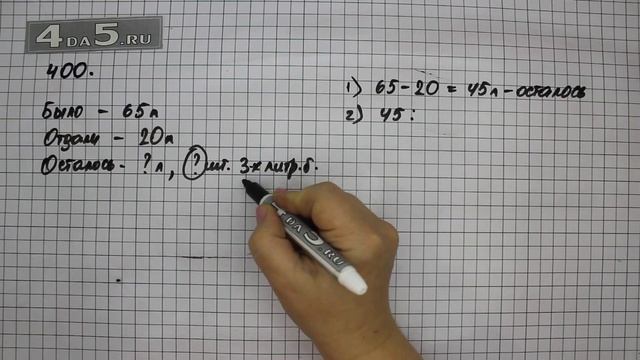 4DA5.RU
400.
Было - 65л
Отдали - 20л
Осталось - ? л, ? шт. 3-х литр. б.
1) 65 - 20 = 45л - осталось
2) 45 :
4DA5.RU